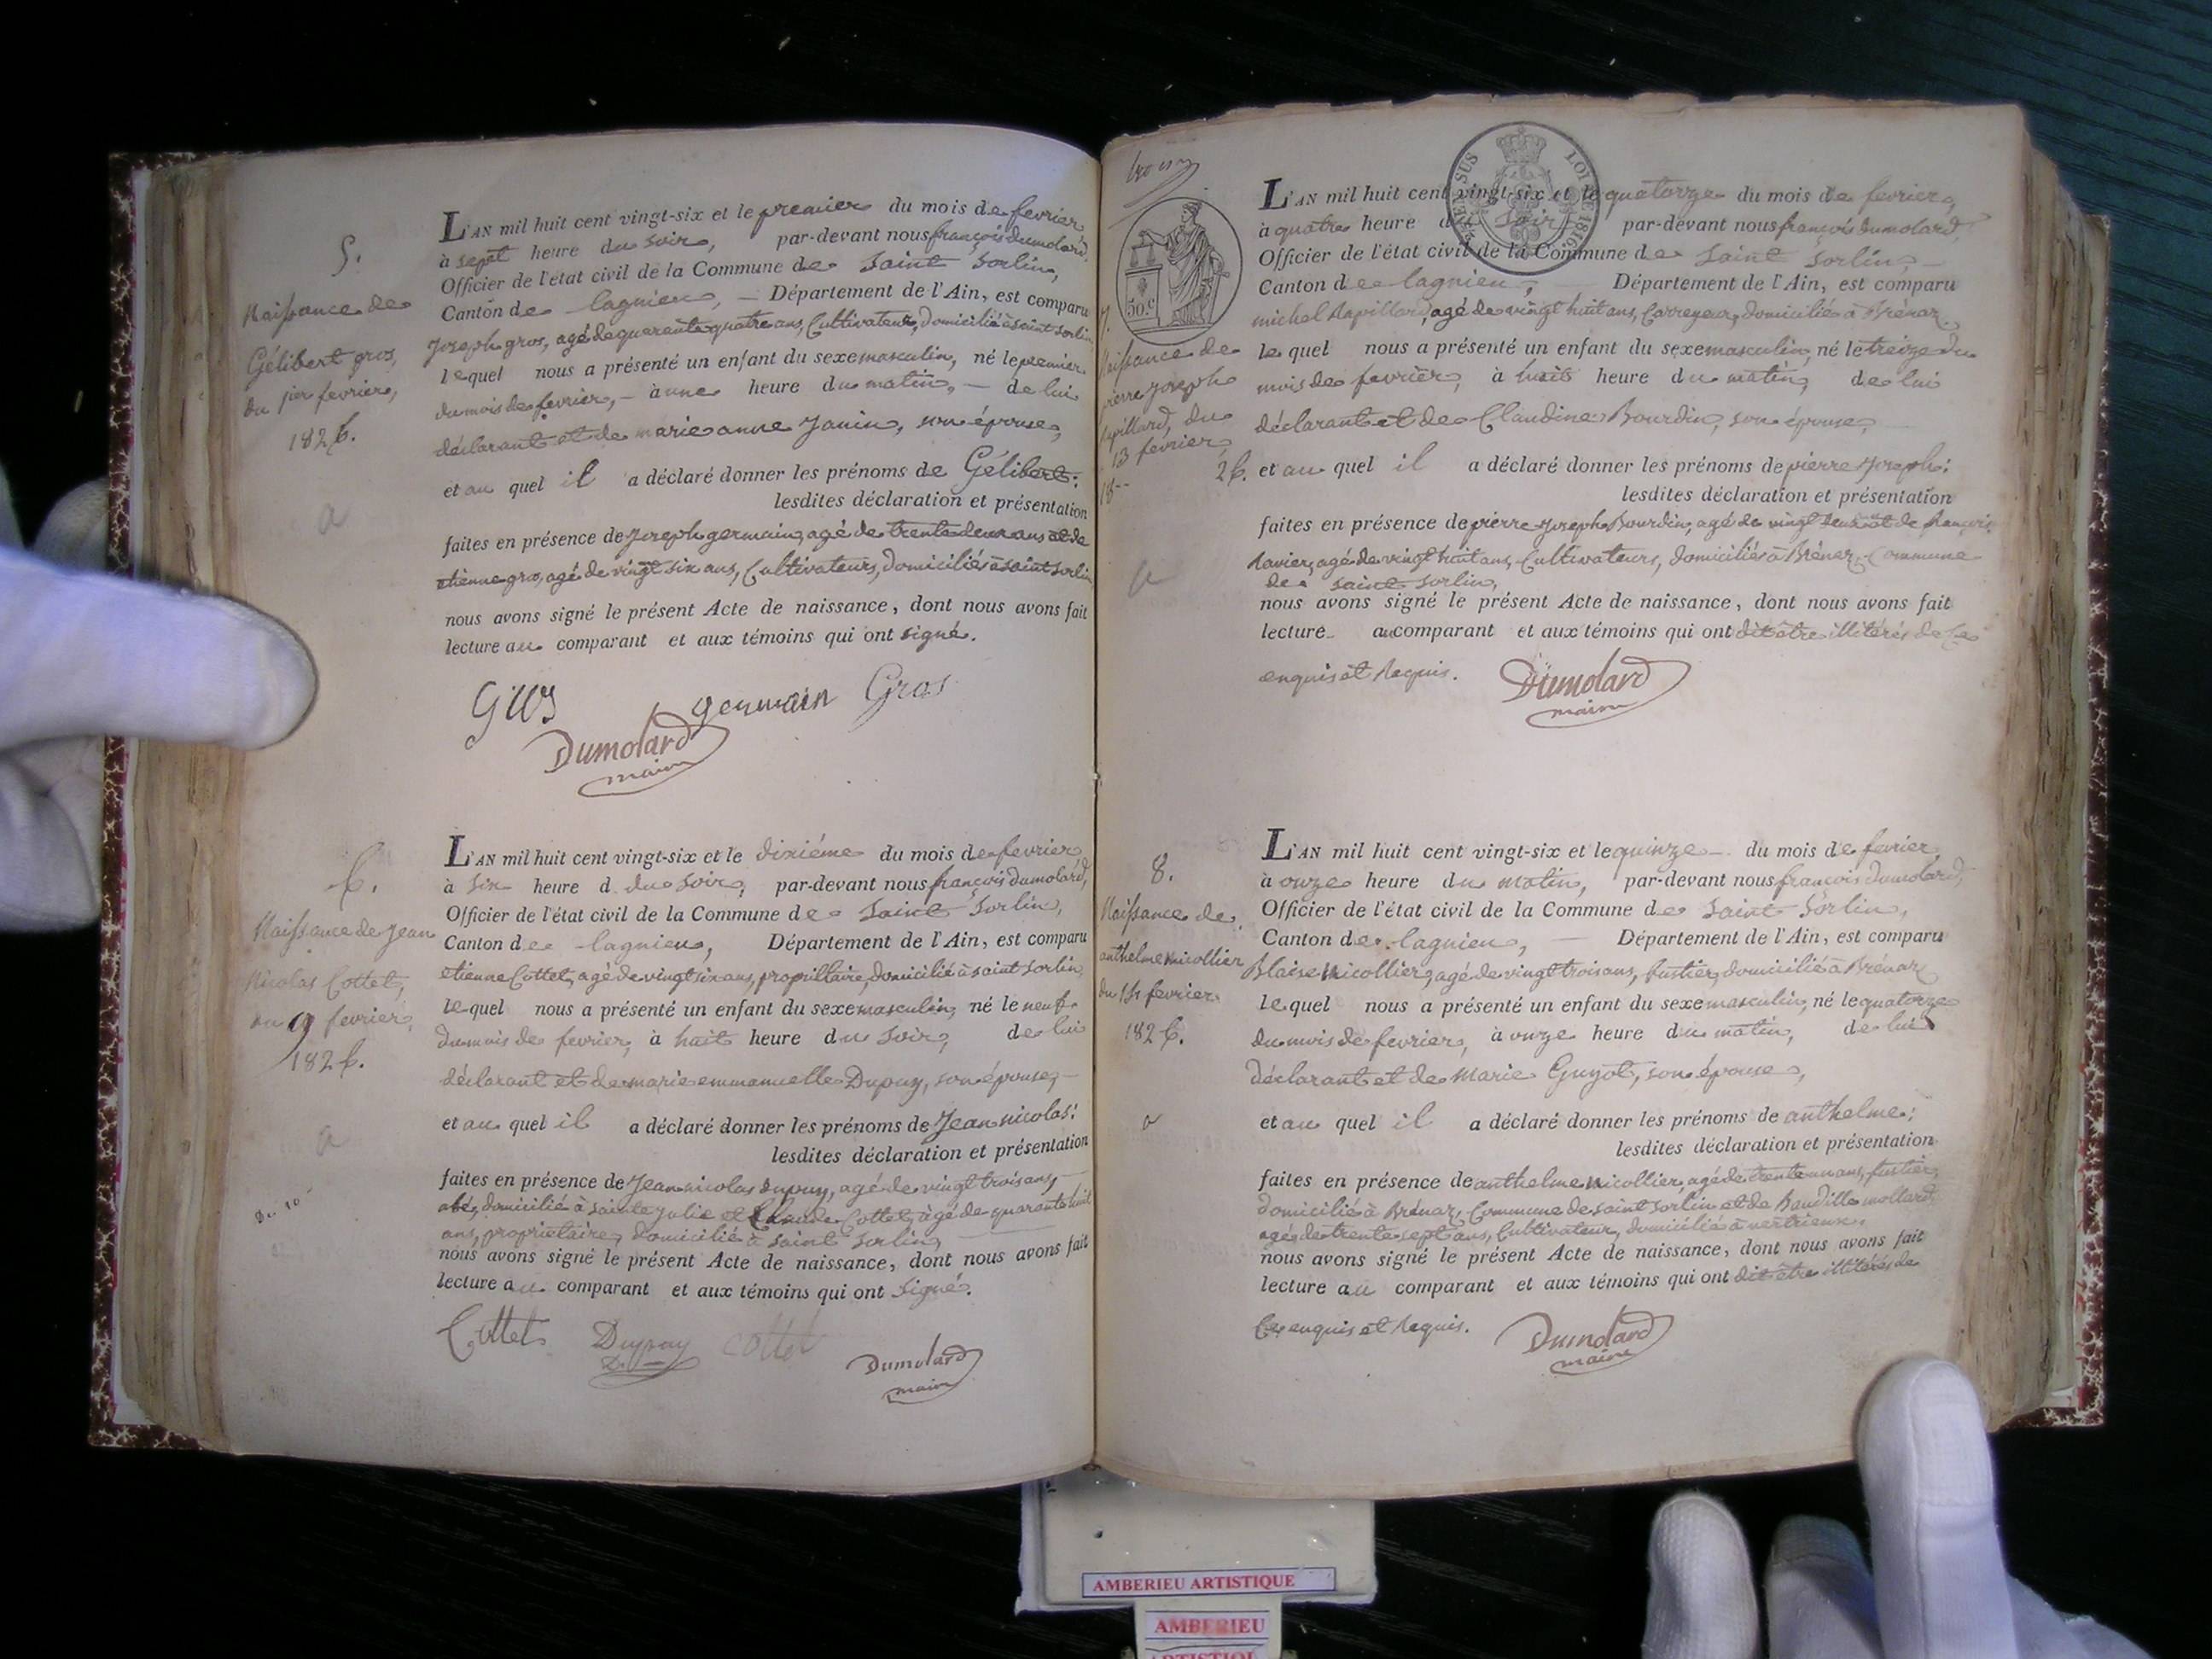 5.
Naissance de
Gélibert gros,
du 1er fevrier,
1826.
a
L'AN mil huit cent vingt-six et le premier du mois de fevrier
à sept heure du soir, par-devant nous françois dumolard,
Officier de l'état civil de la Commune de Saint Sorlin,
Canton de lagnieu, — Département de l'Ain, est comparu
Joseph gros, agé de quarante quatre ans, Cultivateur, domicilié à saint sorlin
lequel nous a présenté un enfant du sexe masculin, né le premier
du mois de fevrier, - à une heure du matin, - de lui
déclarant et de marie anne Janin, son épouse,
et au quel il a déclaré donner les prénoms de Gélibert:
lesdites déclaration et présentation
faites en présence de Joseph germain, agé de trente deux ans et de
etienne gros, agé de vingt six ans, Cultivateurs, domiciliés à saint sorlin
nous avons signé le présent Acte de naissance, dont nous avons fait
lecture au comparant et aux témoins qui ont signé.
Gros germain Gros
Dumolard
maire
6.
Naissance de Jean
Nicolas Cottet,
du 9 fevrier,
1826.
a
Du 10
L'AN mil huit cent vingt-six et le dixiéme du mois de fevrier
à six heure d du soir, par-devant nous françois dumolard,
Officier de l'état civil de la Commune de Saint Sorlin,
Canton de lagnieu, Département de l'Ain, est comparu
etienne Cottet, agé de vingt six ans, propriltaire, domicilié à saint sorlin,
lequel nous a présenté un enfant du sexe masculin, né le neuf
du mois de fevrier, à huit heure du soir, de lui
déclarant et de marie emmanuelle Dupuy, son épouse,
et au quel il a déclaré donner les prénoms de Jean nicolas:
lesdites déclaration et présentation
faites en présence de Jean nicolas dupuy, agé de vingt trois ans,
abé, domicilié à sainte julie et Claude Cottet, agé de quarante huit
ans, propriétaire, domicilié à saint sorlin,
nous avons signé le présent Acte de naissance, dont nous avons fait
lecture au comparant et aux témoins qui ont signé.
Cottet Dupuy cottet
Dumolard
maire
50.c
7.
Naissance de
pierre joseph
rapillard, du
13 fevrier,
18-- 26.
a
L'AN mil huit cent vingt-six et le quatorze du mois de fevrier,
à quatre heure du soir par-devant nous françois dumolard,
Officier de l'état civil de la Commune de Saint Sorlin,
Canton de lagnieu, Département de l'Ain, est comparu
michel Rapillard, agé de vingt huit ans, Carreyeur, domicilié à Brénaz
lequel nous a présenté un enfant du sexe masculin, né le treize du
mois de fevrier, à huit heure du matin, de lui
déclarant et de Claudine Bourdin, son épouse,
et au quel il a déclaré donner les prénoms de pierre joseph:
lesdites déclaration et présentation
faites en présence de pierre joseph Bourdin, agé de vingt deux et de françois
Ravier, agé de vingt huit ans, Cultivateurs, domiciliés à Brénaz, Commune
de saint sorlin,
nous avons signé le présent Acte de naissance, dont nous avons fait
lecture au comparant et aux témoins qui ont dit être illitérés de ce
enquis et Requis.
Dumolard
maire
LOI DE 1816
8.
Naissance de
anthelme nicollier,
du 14 fevrier
1826.
a
L'AN mil huit cent vingt-six et le quinze du mois de fevrier
à onze heure du matin, par-devant nous françois dumolard,
Officier de l'état civil de la Commune de Saint Sorlin,
Canton de lagnieu, — Département de l'Ain, est comparu
Blaise nicollier, agé de vingt trois ans, fustier, domicilié à Brénaz
lequel nous a présenté un enfant du sexe masculin, né le quatorze
du mois de fevrier, à onze heure du matin, de lui
déclarant et de Marie Guyot, son épouse,
et au quel il a déclaré donner les prénoms de anthelme:
lesdites déclaration et présentation
faites en présence de anthelme nicollier, agé de trente un ans, fustier,
domicilié à Brénaz, Commune de saint sorlin et de Baudille mollard,
agé de trente sept ans, Cultivateur, domicilié à vertrieux.
nous avons signé le présent Acte de naissance, dont nous avons fait
lecture au comparant et aux témoins qui ont dit être illitérés de
ce enquis et Requis.
Dumolard
maire
AMBERIEU ARTISTIQUE
AMBERIEU
ARTISTIQUE